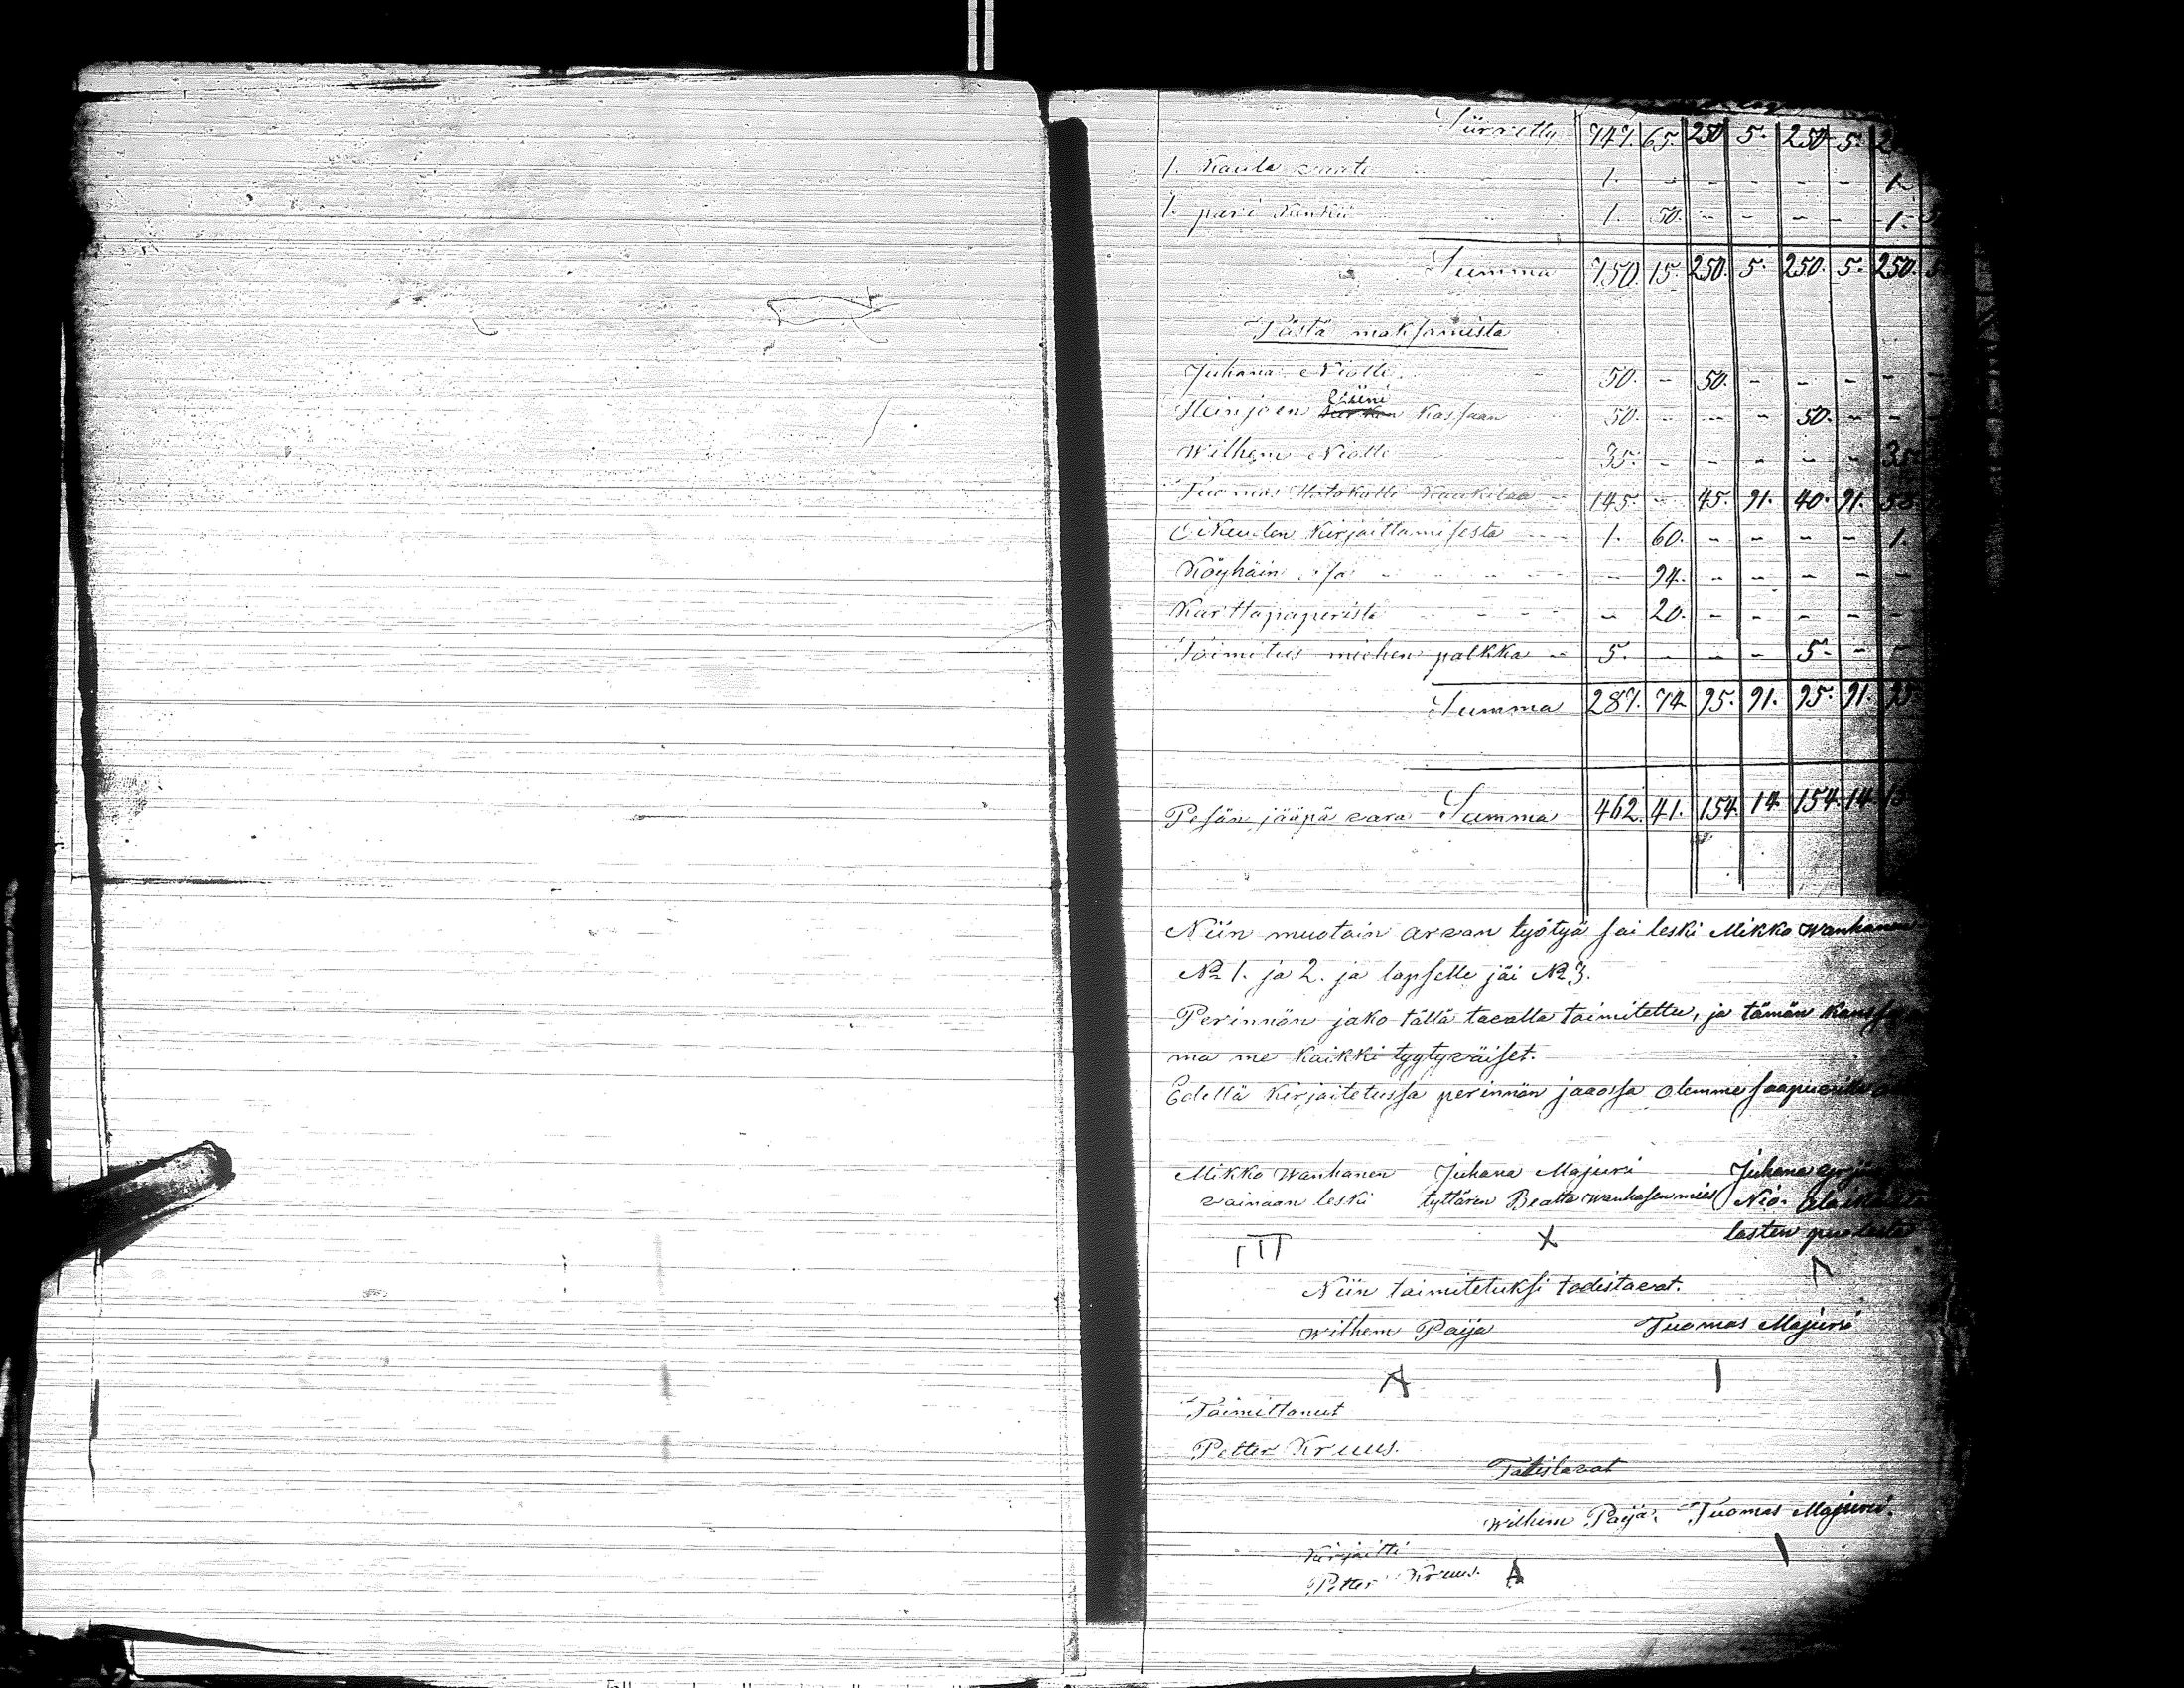 Siirretty 747. 65. 250 5. 250 5.
1. Kaula vaate 1. - - - - - 1.
1. pari Kenkiä 1. 50. - - - - 1.
Summa 750. 15. 250. 5. 250. 5. 250.
Tästä maksamista
Juhana Niolle 50. - 50. - - - -
Heinjoen Lääni Kassaan 50. - - - 50. - -
Wilhem Niolle 35. - - - - - 35
Tuomas Kaukilaa 145. - 45. 91. 40. 91.
Oikeuden Kirjaittamisesta 1. 60. - - - - 1.
Köyhäin - 94. - - - - -
Karttapaperista - 20. - - - - -
Toimitus miehen palkka 5. - - - 5. - -
Summa 287. 74 95. 91. 95. 91. 95
Pesän jääpä vara Summa 462. 41. 154. 14 154. 14
Niin muotoin arvan työtyä sai leski Mikko Wanhanen
No 1. ja 2. ja lapselle jäi No 3.
Perinnön jako tällä tavalla toimitettu, ja tämän Kanssa
ma me Kaikki tyytyväiset.
Edellä Kirjaitetussa perinnön jaaossa olemme saapuvilla
Mikko Wanhanen Juhana Majuri Juhana
vainaan leski tyttären Beatta Wanhasen mies Nio.
lasten puolesta
X
Niin toimitetuksi todistavat.
Wilhem Paija Tuomas Majuri
A I
Toimittanut
Petter Kruus.
Todistavat
Wilhem Paija. Tuomas Majuri.
Kirjaitti
Petter Kruus. A